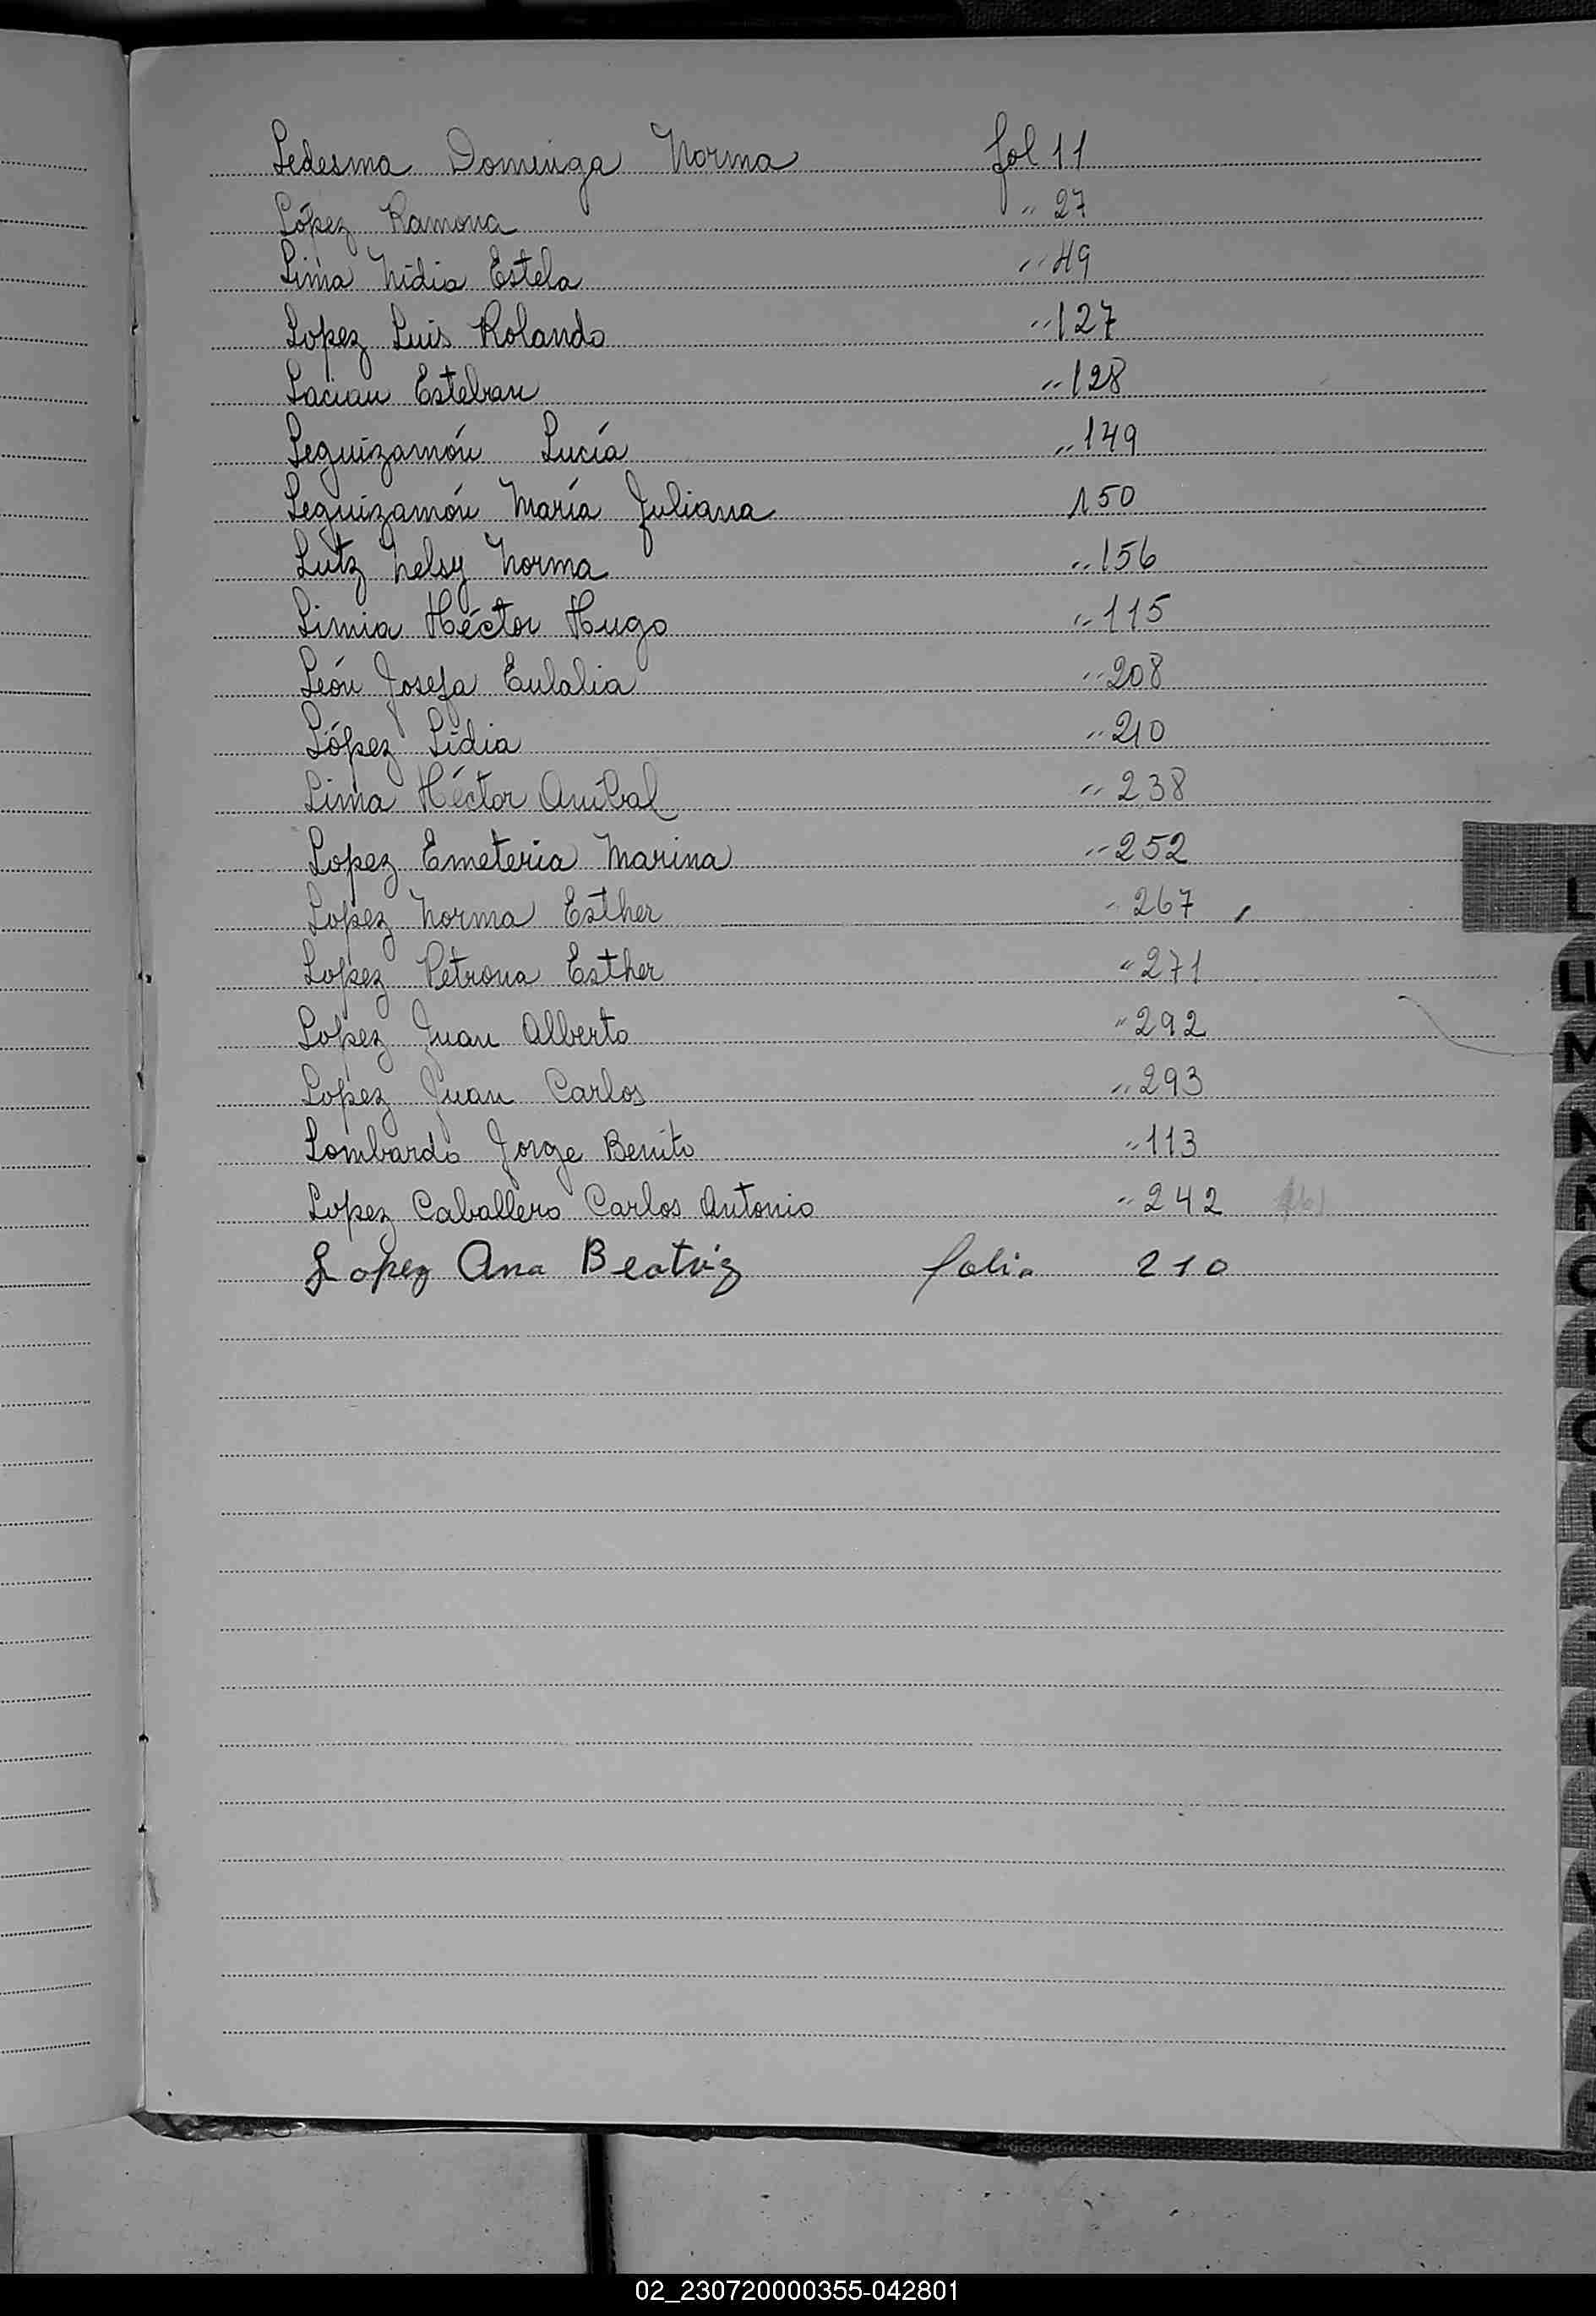 Ledesma Dominga Norma fol 11
López Ramona " 27
Lima Nidia Estela " 49
Lopez Luis Rolando " 127
Lacian Esteban " 128
Leguizamón Lucía " 149
Leguizamón María Juliana 150
Lutz Nelsy Norma " 156
Limia Héctor Hugo " 115
León Josefa Eulalia " 208
López Lidia " 210
Lima Héctor Anibal " 238
Lopez Emeteria Marina " 252
Lopez Norma Esther " 267
Lopez Petrona Esther " 271
Lopez Juan Alberto " 292
Lopez Juan Carlos " 293
Lombardo Jorge Benito " 113
Lopez Caballero Carlos Antonio " 242
Lopez Ana Beatriz folio 210
L
LL
M
N
Ñ
O
02_230720000355-042801